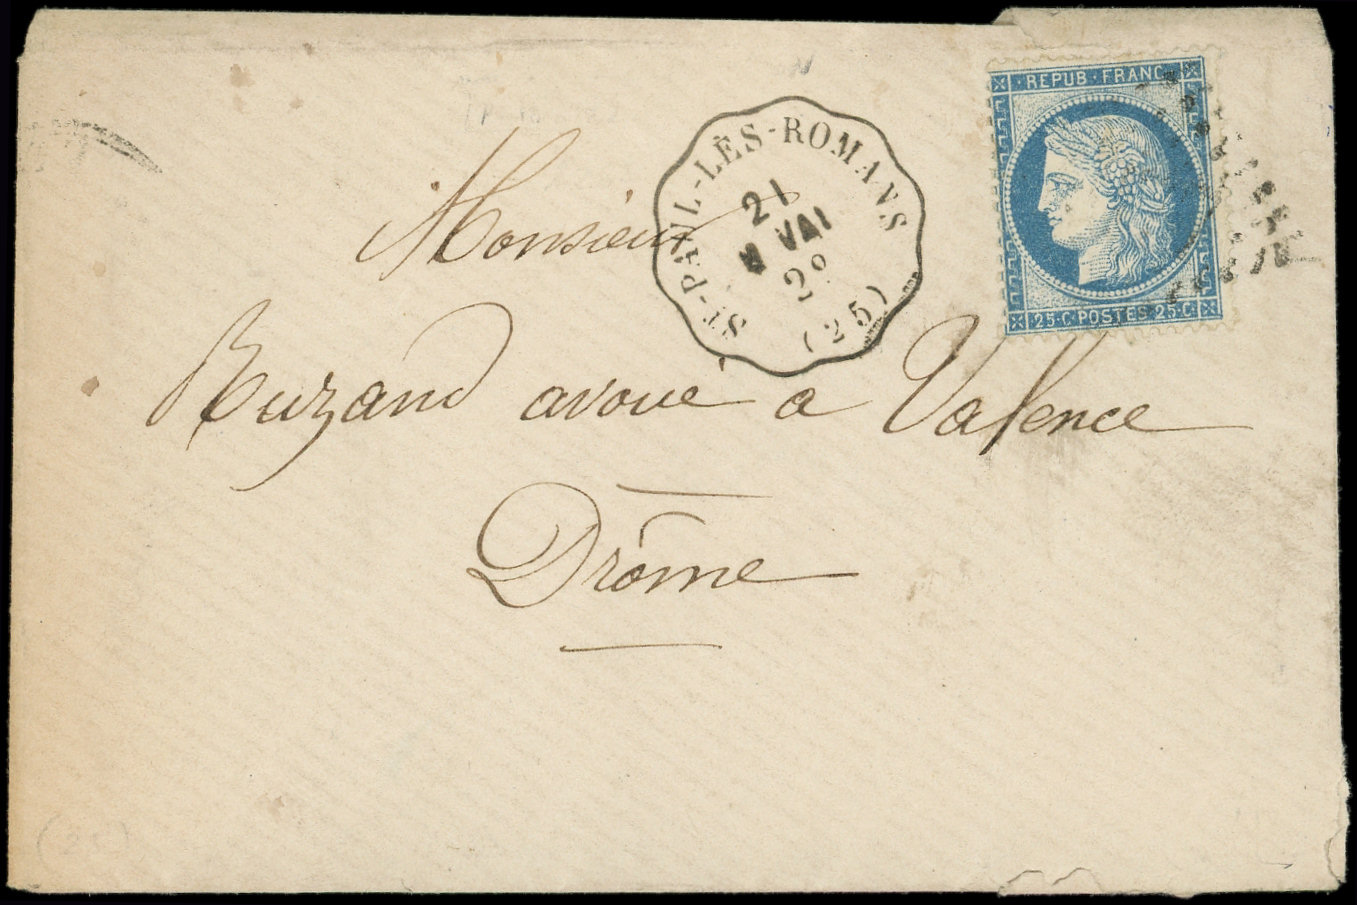 ST-PAUL-LÈS-ROMANS
21
MAI
(25)
REPUB·FRANC
25·C·POSTES 25·C·
Monsieur
Ruzand avoué à Valence
Drôme